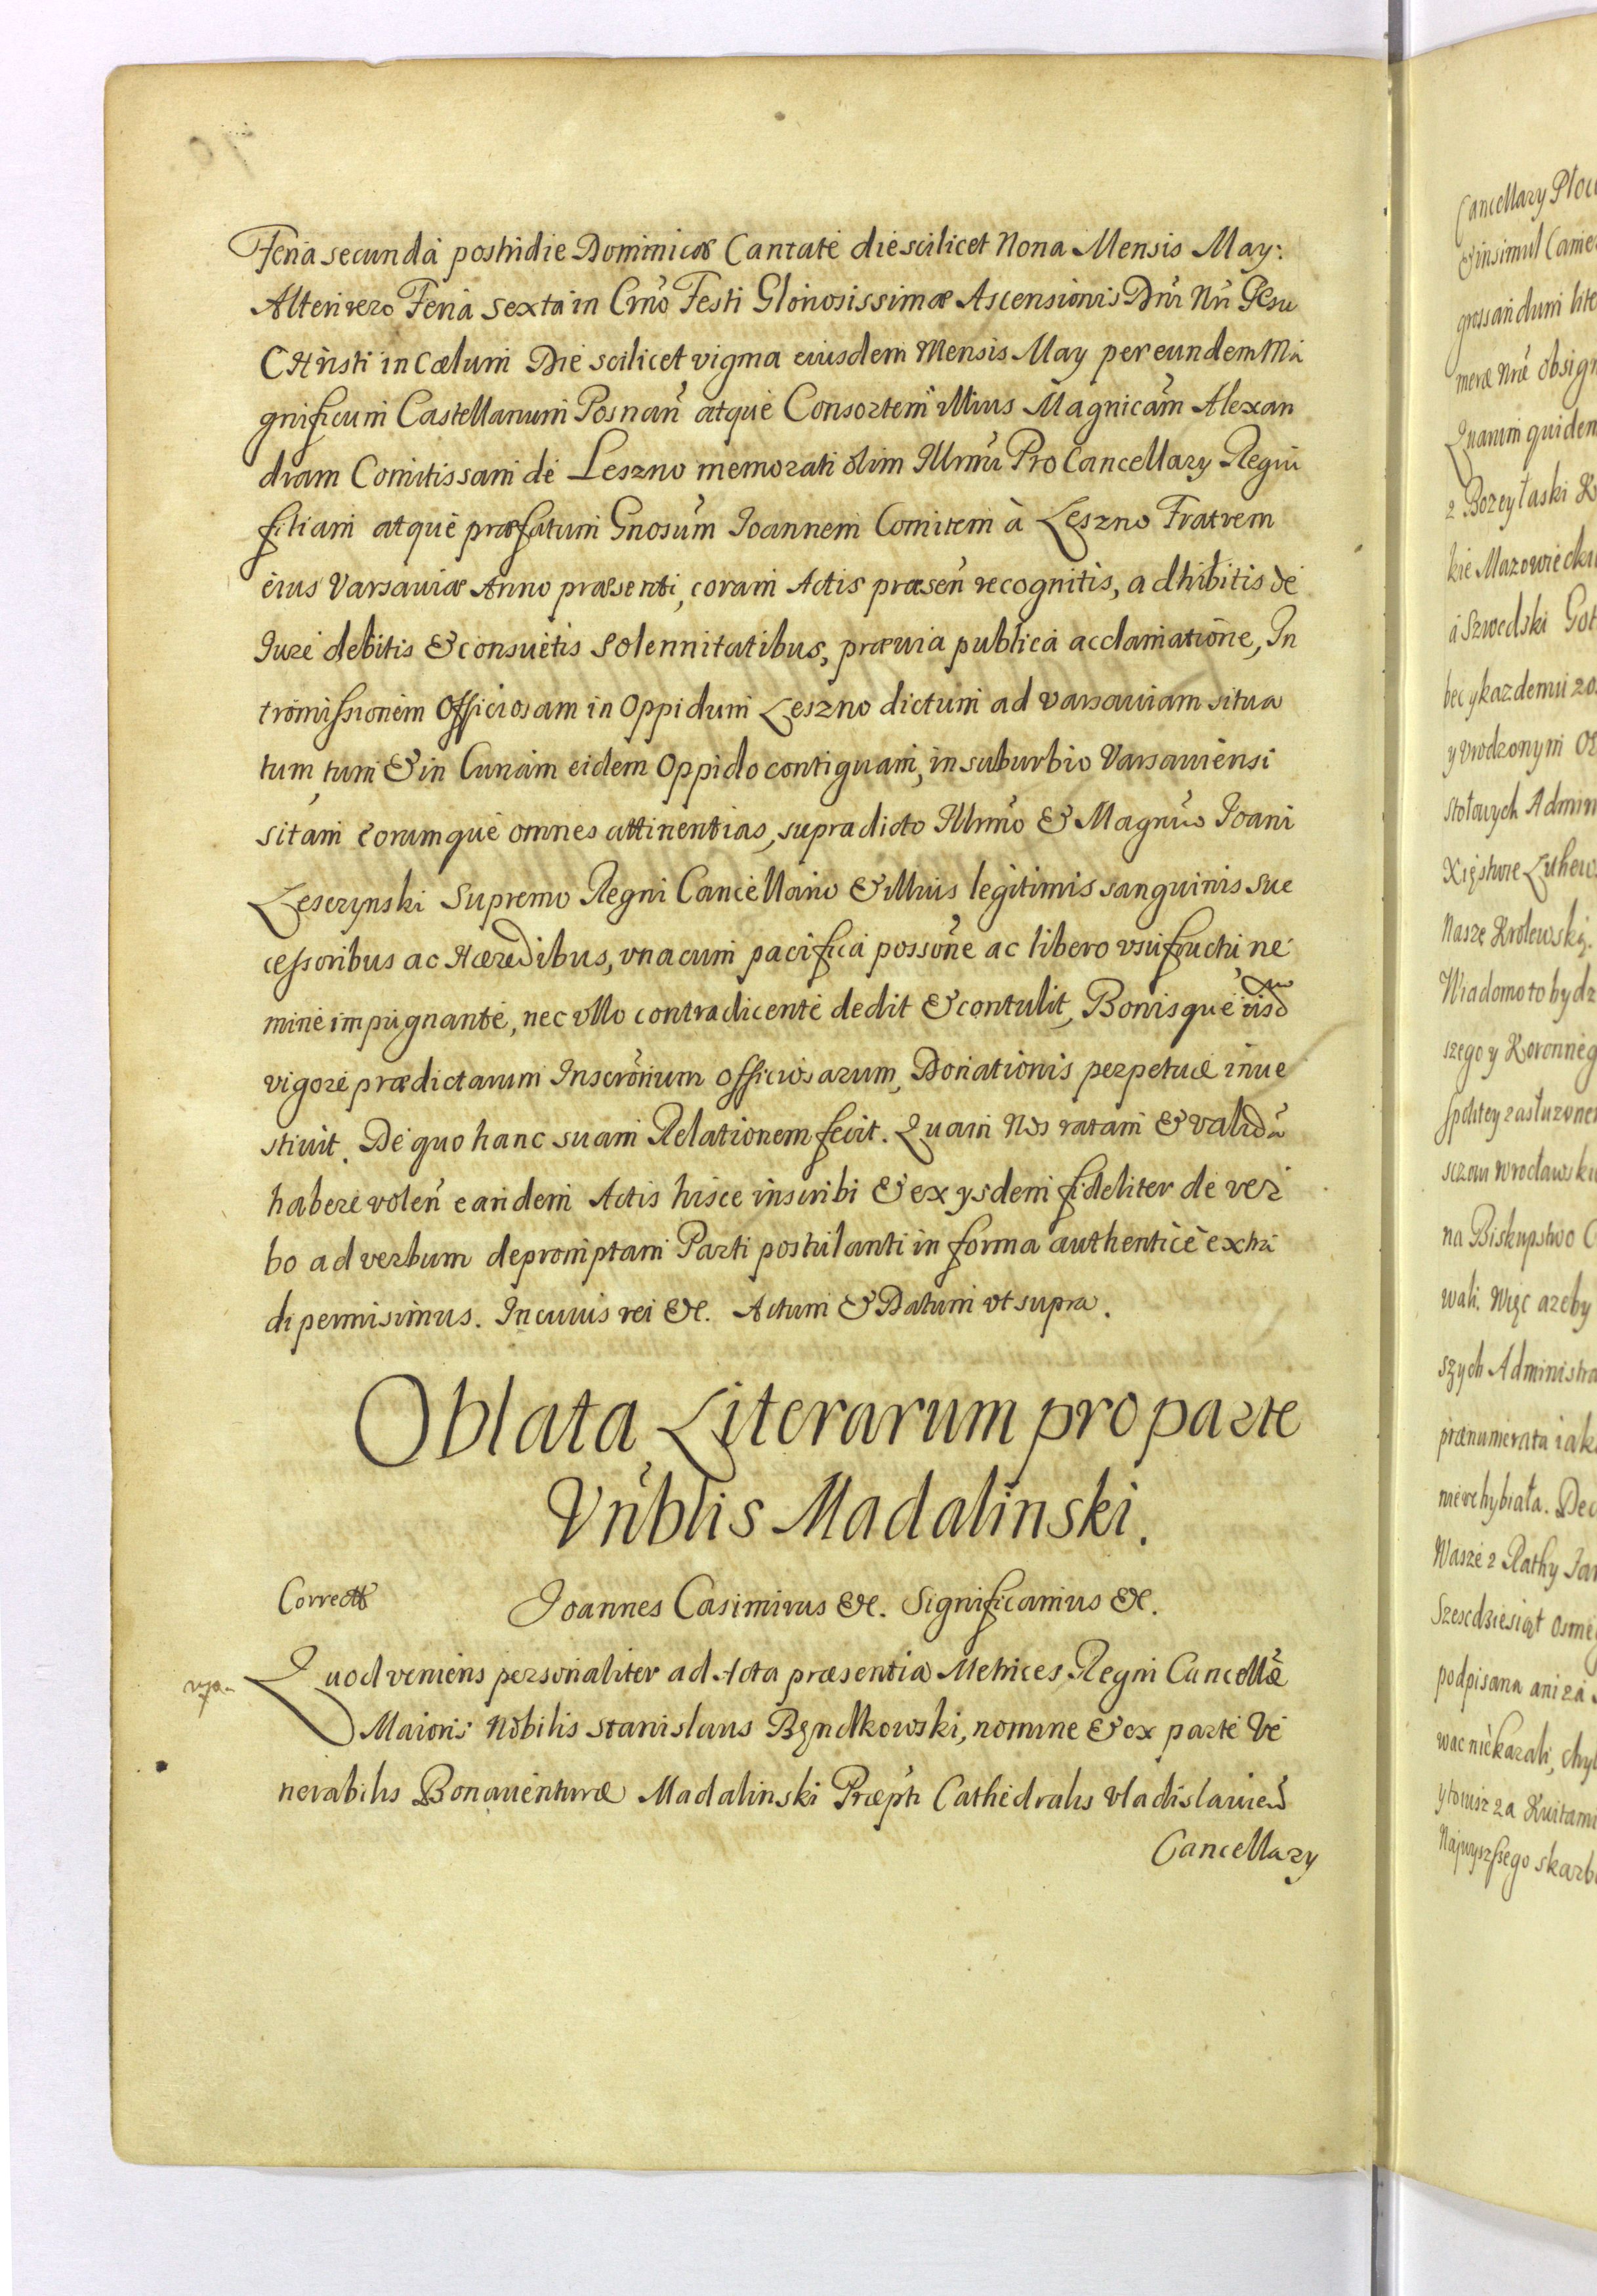 Feria secunda postridie Dominicæ Cantate die scilicet Nona Mensis May:
Alteri vero Feria sexta in Crño Festi Gloriosissimæ Ascensionis Dñi Nri Jesu
CHristi in Cælum Die scilicet vigma eiusdem Mensis May per eundem Ma
gnificum Castellanum Posnañ atque Consortem illius Magnicãm Alexan
dram Comitissam de Leszno memorati olim Illrmi ProCancellary Regni
filiam atque præfatum Gnosũm Joannem Comitem à Leszno Fratrem
eius Varsaviæ Anno præsenti, coram Actis præseñ recognitis, adhibitis de
Jure debitis & consuetis solennitatibus, prævia publica acclamatione, In
tromissionem Officiosam in Oppidum Leszno dictum ad Varsaviam situa
tum, tum & in Curiam eidem Oppido contiguam, in suburbio Varsaviensi
sitam eorumque omnes attinentias, supradicto Illrmo & Magnco Joani
Lesczynski Supremo Regni Cancellario & illius legitimis sanguinis suc
cessoribus ac Hæredibus, vnacum pacifica possone ac libero vsufructu ne
mine impugnante, nec vllo contradicente dedit & contulit, Bonisque iisd
vigore prædictarum Inscronum officiosarum, Donationis perpetuæ inue
stiuit. De quo hanc suam Relationem fecit. Quam Nos ratam & validã
habere voleñ eandem Actis hisce inscribi & ex ysdem fideliter de ver
bo ad verbum depromptam Parti postulanti in forma authentice extra
di permisimus. In cuius rei &c. Actum & Datum vt supra.
Oblata Literarum pro parte
Vñblis Madalinski.
Correct
Joannes Casimirus &c. Significamus &c.
Quod veniens personaliter ad Acta præsentia Metrices Regni Cancellæ
Maioris Nobilis Stanislaus Bendkowski, nomine & ex parte Ve
nerabilis Bonauenturæ Madalinski Præpti Cathedralis Vladislavieñ
Cancellary
Cancellary Płoc
& insimul Came
grossandum lite
meræ Nræ obsign
Quarum quidem
z Bozey łaski K
kie Mazowiecki
a Szwedski Got
bec y kazdemu zo
y vrodzonym
stołowych Admin
Xięstwie Lithew
Nasze Krolewską.
Wiadomo to bydz
szego y Koronneg
zasłuzone
sczam Wrocławski
na Biskupstwo C
wali. Więc azeby
szych Administra
prænumerata iak
niewchybiała. De
Wasze z Rathy Ja
Szescdziesiąt osme
podpisana ani za
wac niekazali, chy
y towisz za Kwitami
Najwyzszego skarb